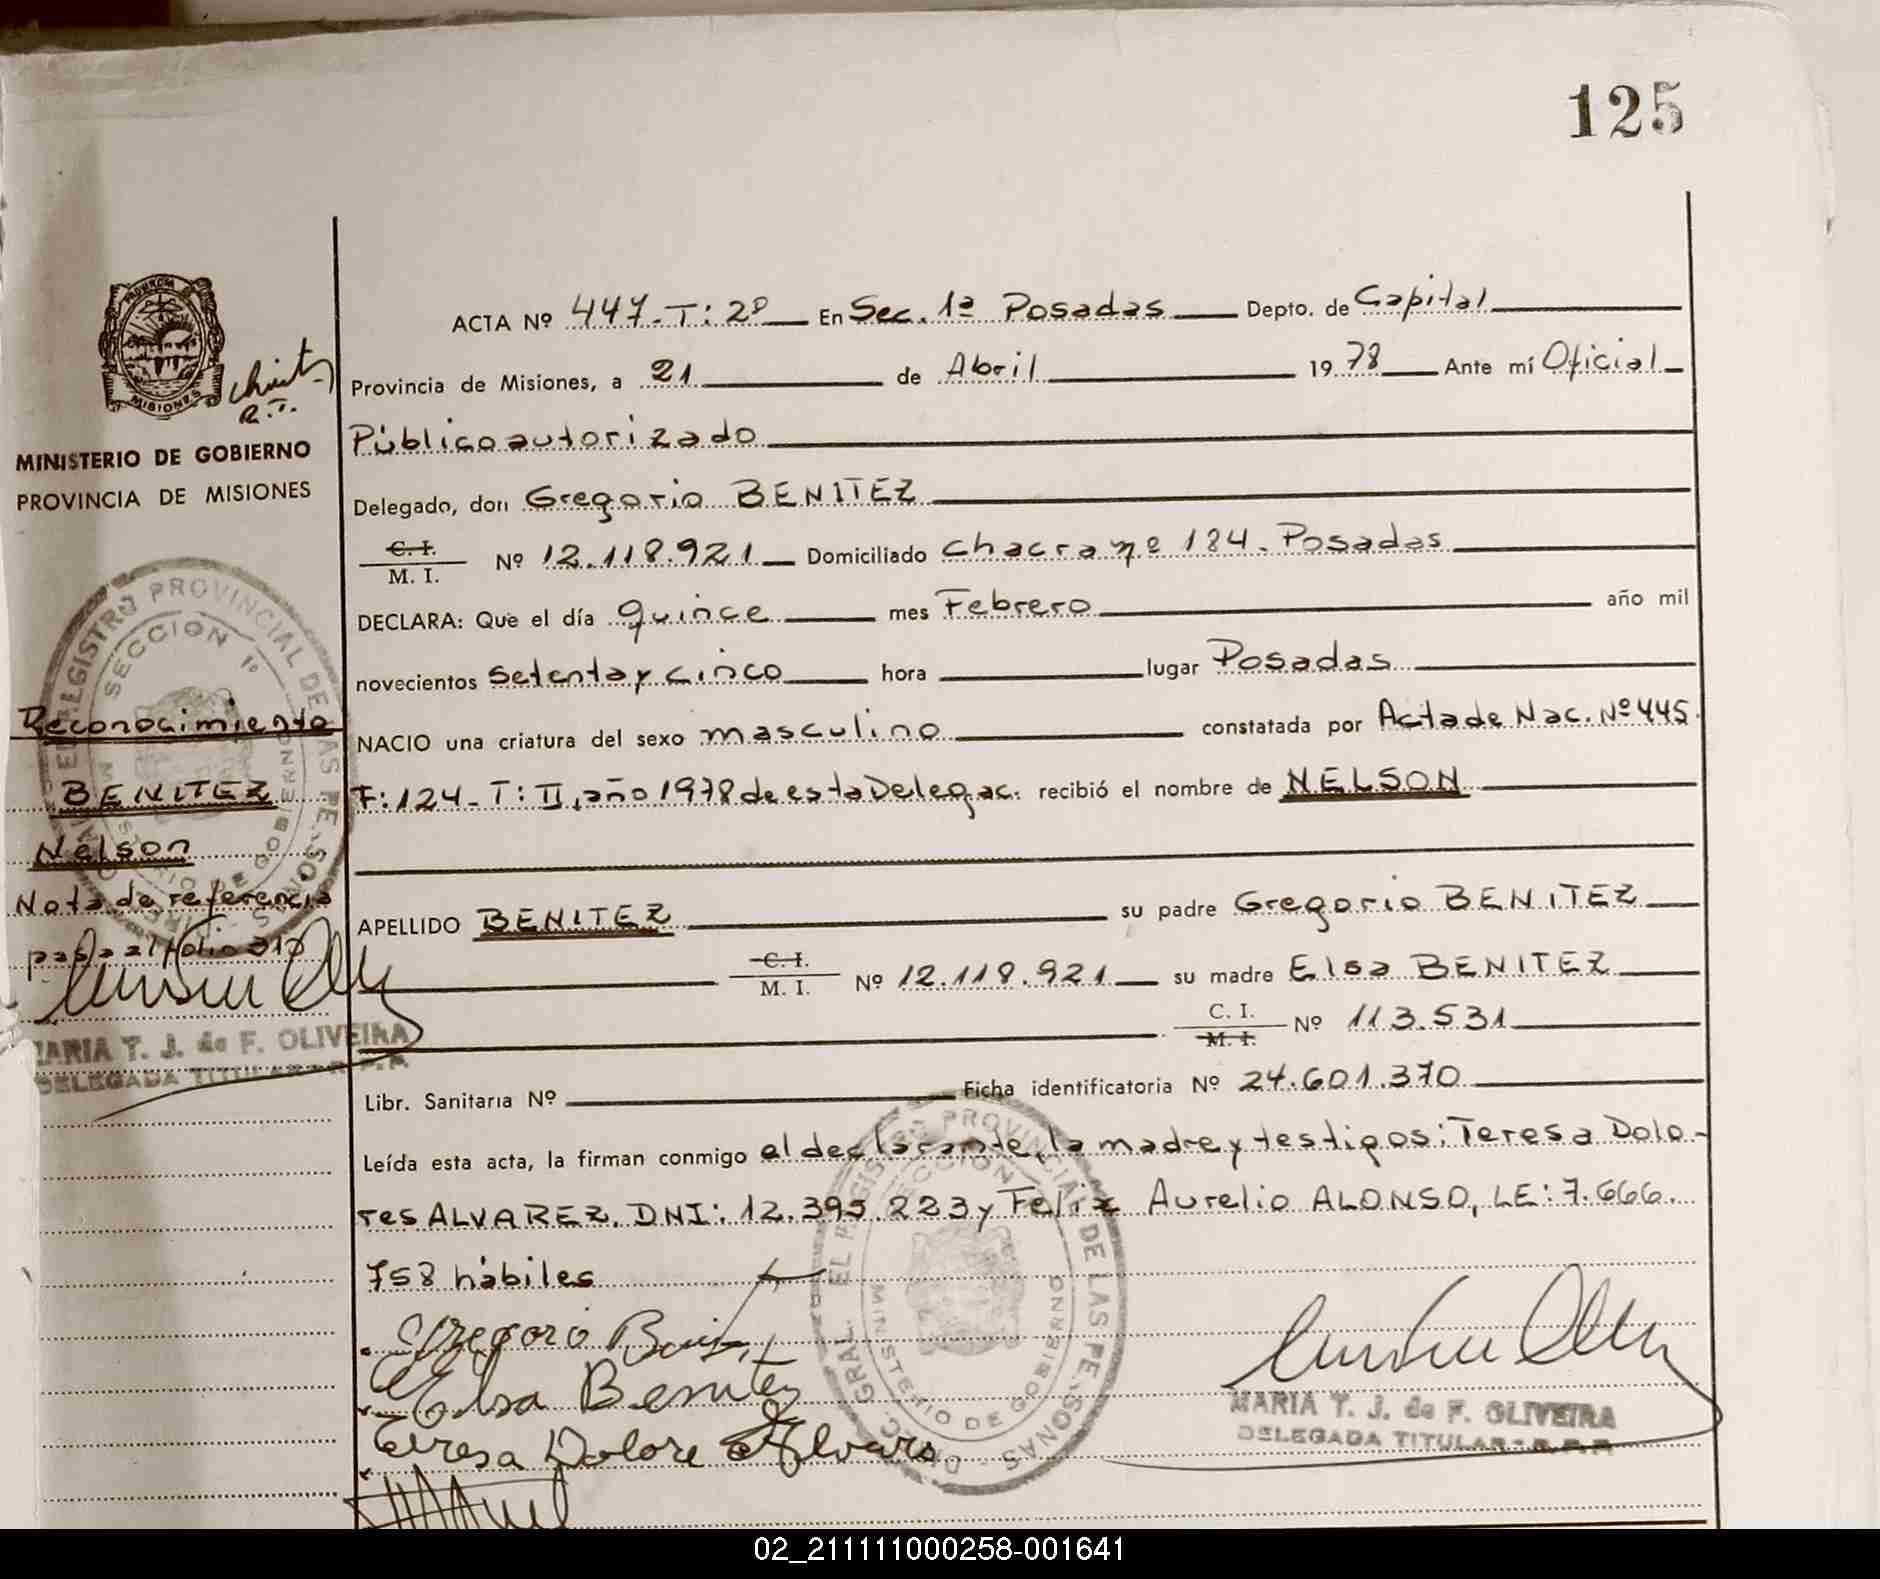 125
PROVINCIA DE
MISIONES
R.T.
MINISTERIO DE GOBIERNO
PROVINCIA DE MISIONES
Reconocimiento
BENITEZ
Nelson
Nota de referencia
pasa al folio
MARIA T. J. de F. OLIVEIRA
DELEGADA TITULAR - R.P.P.
ACTA Nº 447-T: 2º En Sec. 1ª Posadas Depto. de Capital
Provincia de Misiones, a 21 de Abril 1978 Ante mí Oficial
Público autorizado
Delegado, don Gregorio BENITEZ
C. I.
M. I. Nº 12.118.921 Domiciliado Chacra nº 184. Posadas
DECLARA: Que el día quince mes Febrero año mil
novecientos setenta y cinco hora lugar Posadas
NACIO una criatura del sexo masculino constatada por Acta de Nac. Nº 445
F: 124- T: II, año 1978 de esta Delegac. recibió el nombre de NELSON
APELLIDO BENITEZ su padre Gregorio BENITEZ
C. I.
M. I. Nº 12.118.921 su madre Elsa BENITEZ
C. I.
M. I. Nº 113.531
Libr. Sanitaria Nº Ficha identificatoria Nº 24.601.370
Leída esta acta, la firman conmigo el declarante, la madre y testigos: Teresa Dolo-
res ALVAREZ, DNI: 12.395.223 y Felix Aurelio ALONSO, LE: 7.666.
758 hábiles
Gregorio
Elsa Benitez
Teresa Dolore Alvare
MARIA T. J. de F. OLIVEIRA
DELEGADA TITULAR - R.P.P.
DIREC. GRAL. EL REGISTRO PROVINCIAL DE LAS PERSONAS
SECCION 1º
MINISTERIO DE GOBIERNO
02_211111000258-001641